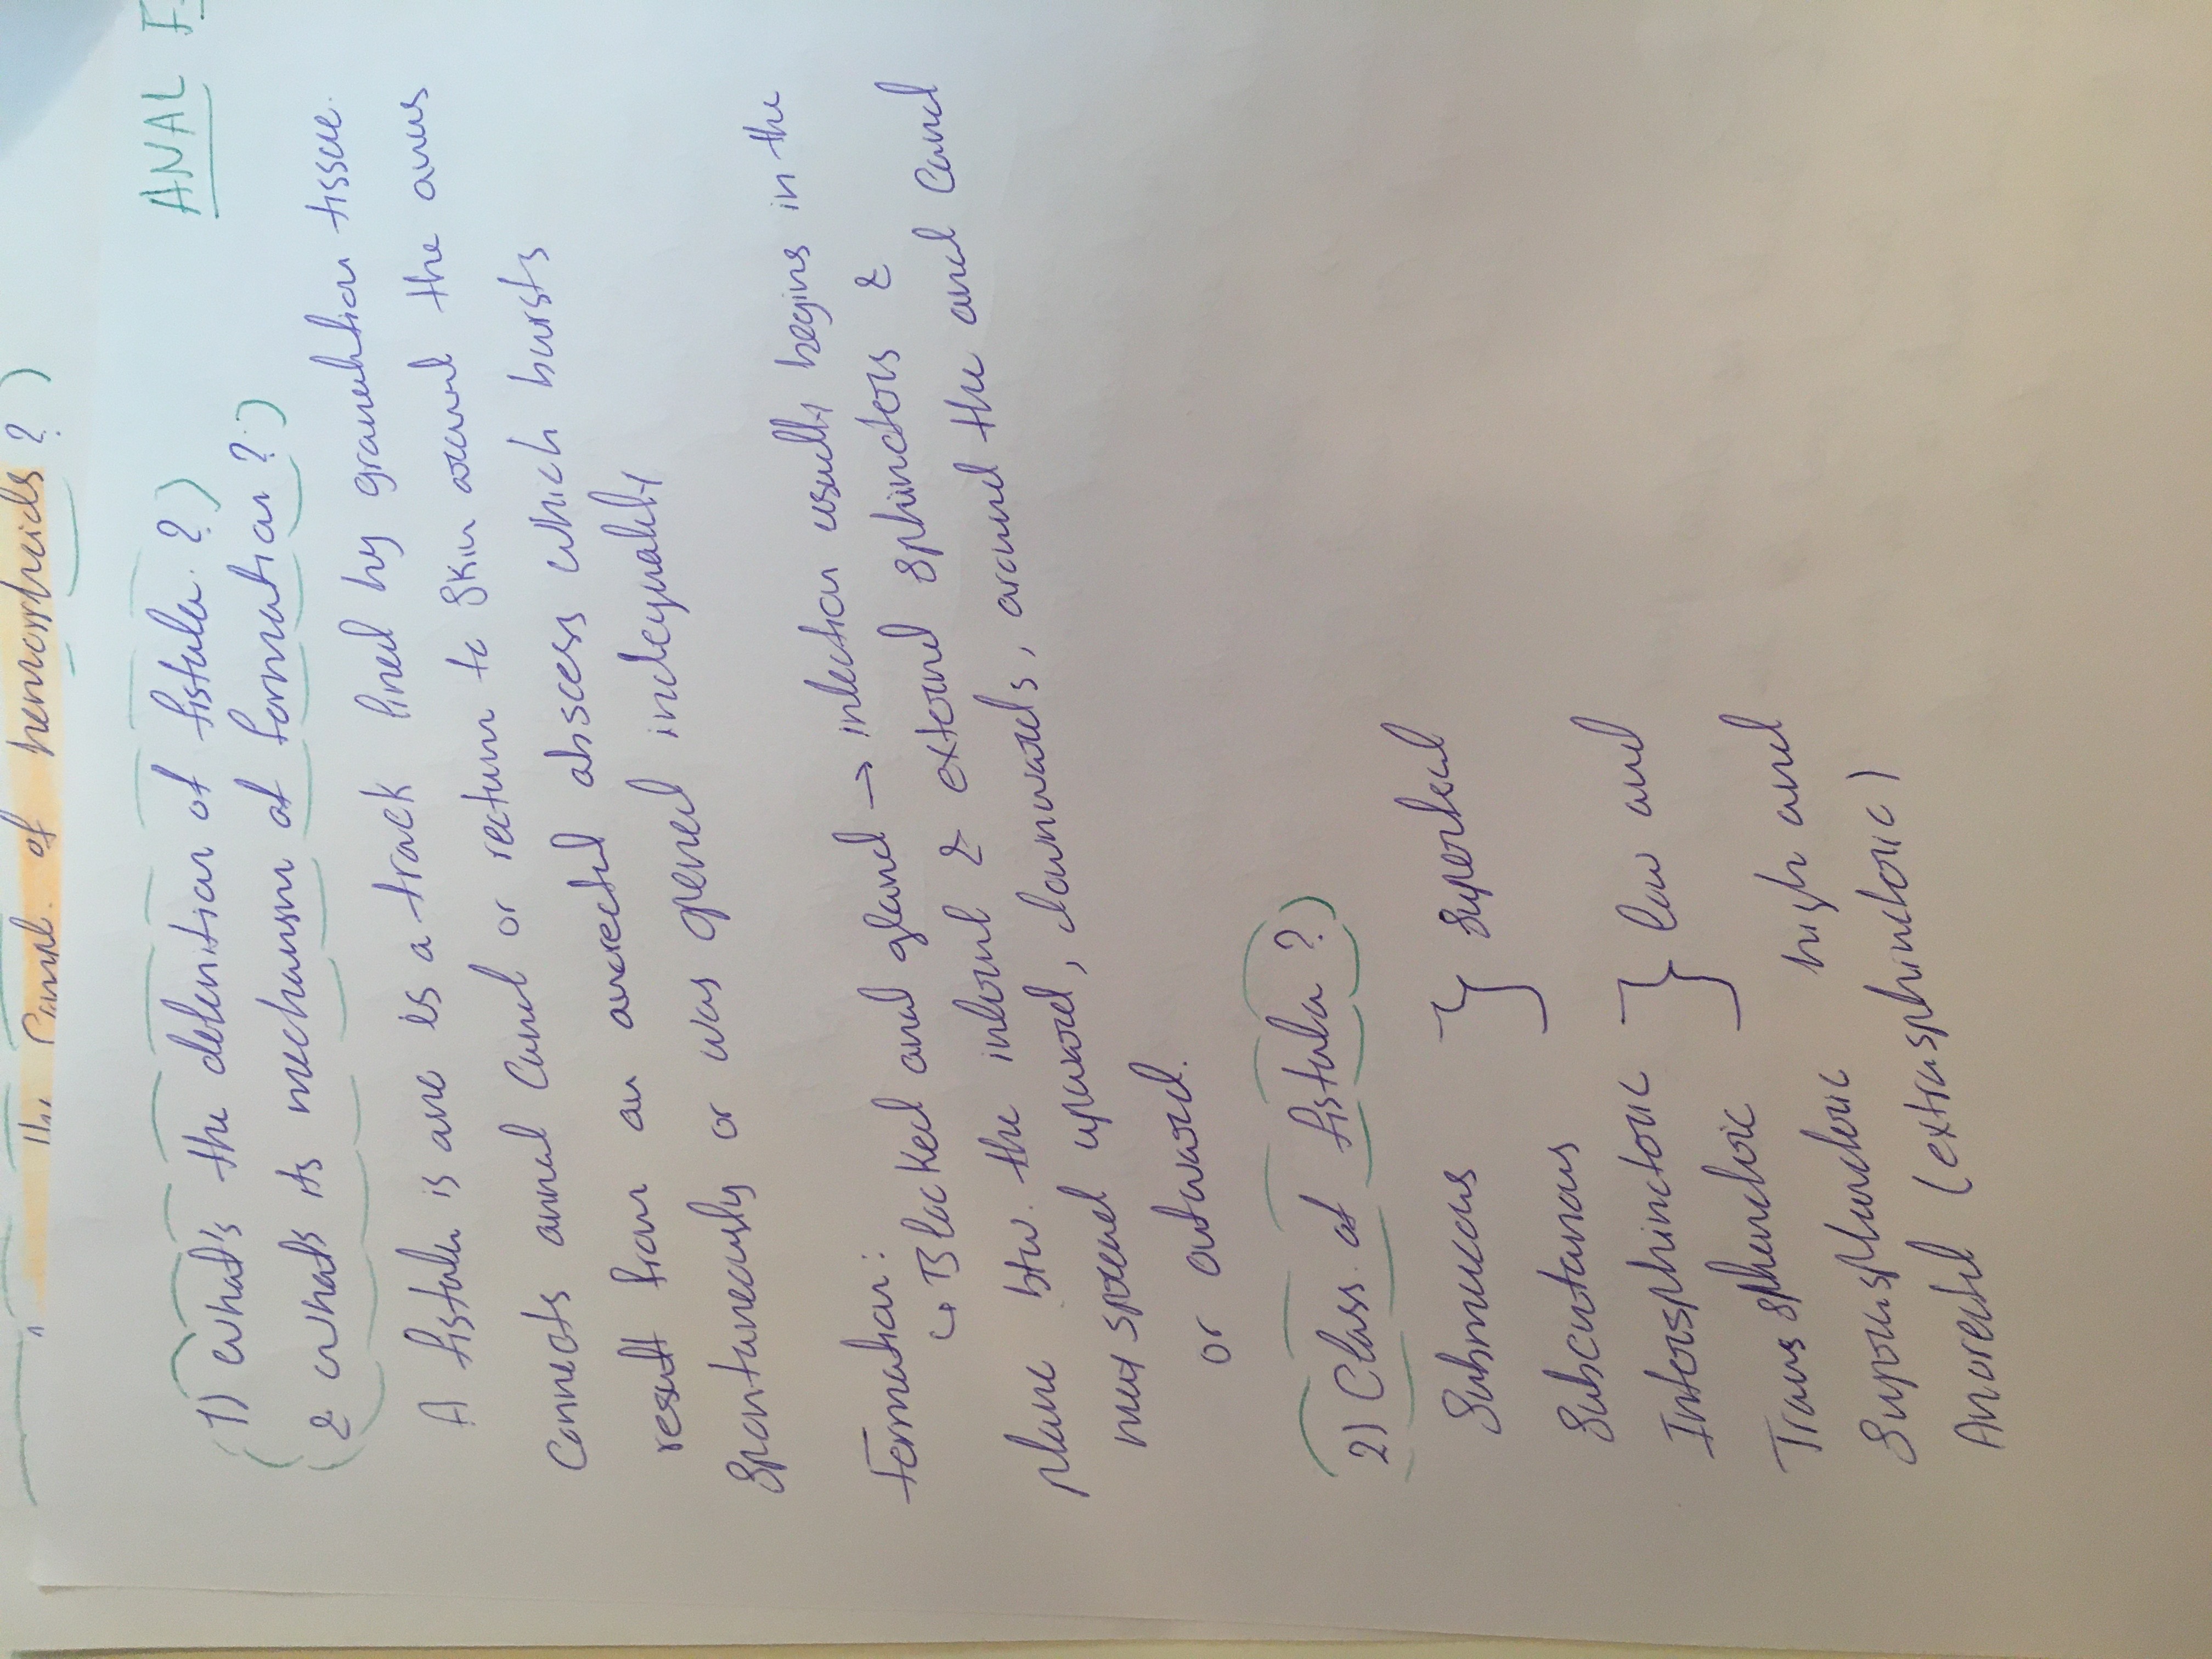 of hemorrhoids?)
ANAL
1) what's the definition of fistula.?)
(& what's its mechanism of formation?)
A fistula is one is a track lined by granulation tissue.
Connects annal Canal or rectum to skin around the anus
result from an anorectal abscess which bursts
Spontaneously or was opened indeqnatly
Formation:
↳ Blocked anal gland → infection usually begins in the
plane btw. the internal & external sphincters &
may spread upward, downwards, around the anal Canal
or outward.
2) Class. of fistula?)
Submucus } Superficial
Subcutanous
Intersphinctoric } low anal
Trans sphenctoric
Suprasphinctoric high anal
Anorectal (extrasphinctoric)